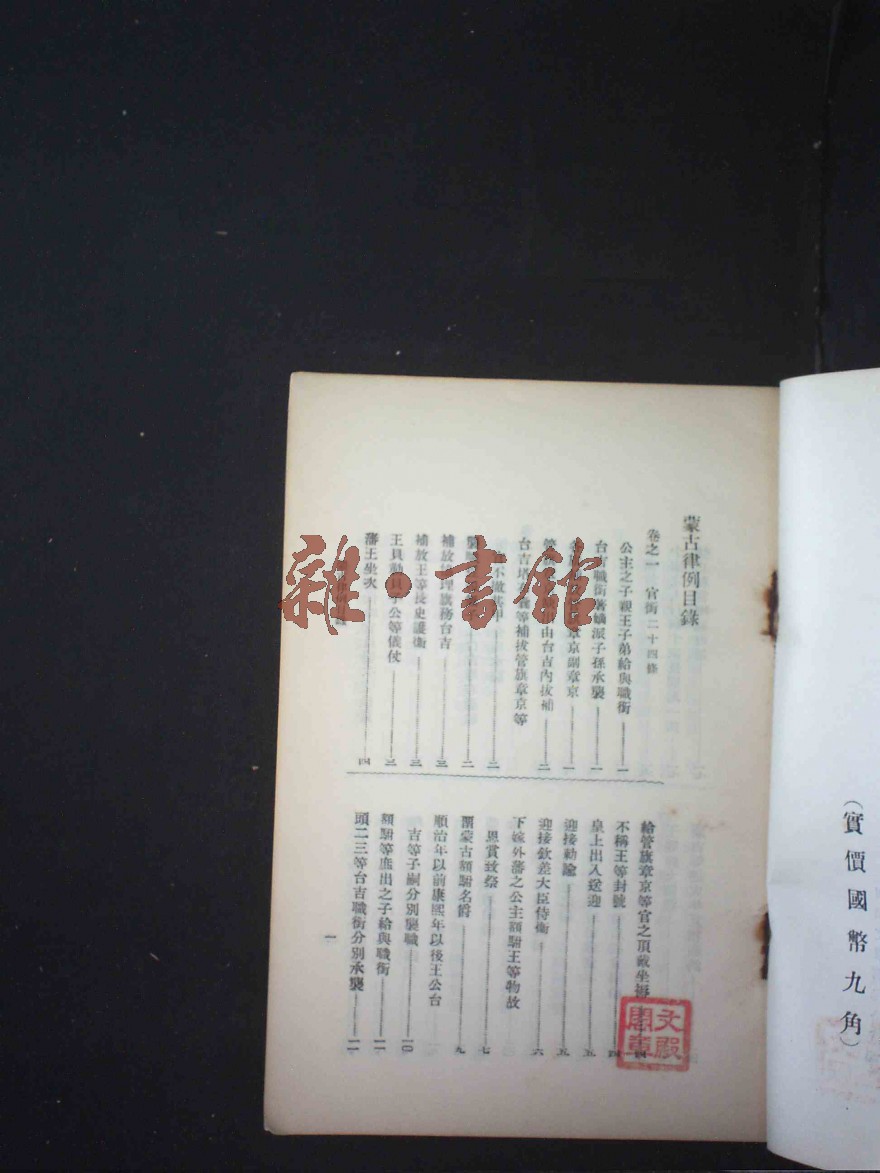 蒙古律例目錄
卷之一 官銜二十四條
公主之子親王子弟給與職銜 一
台吉職銜著嫡派子孫承襲 一
章京副章京 一
由台吉內拔補 二
台吉 等補拔管旗章京等
二
二
補放 旗務台吉 三
補放王等長史護衛 三
王貝勒貝子公等儀仗 三
藩王坐次 四
給管旗章京等官之頂戴坐褥 四
不稱王等封號 四
皇上出入送迎 五
迎接勅諭 五
迎接欽差大臣侍衛 六
下嫁外藩之公主額駙王等物故
恩賞致祭 七
蒙古額駙名爵 九
順治年以前康熙年以後王公台
吉等子嗣分別襲職 一〇
額駙等庶出之子給與職銜 一一
頭二三等台吉職銜分別承襲 一一
一
(實價國幣九角)
雜·書館
文殿閣章